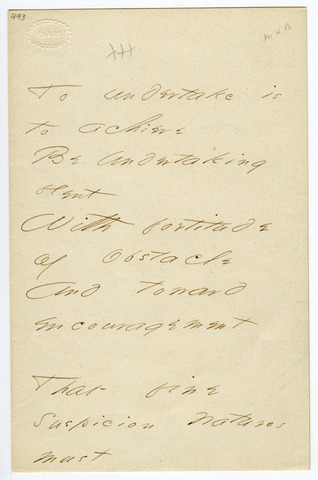 493
PARIS
MHB
To undertake is
to achieve
Be undertaking
blent
With fortitude
of obstacle
And toward
encouragement
That fine
suspicion Natures
must